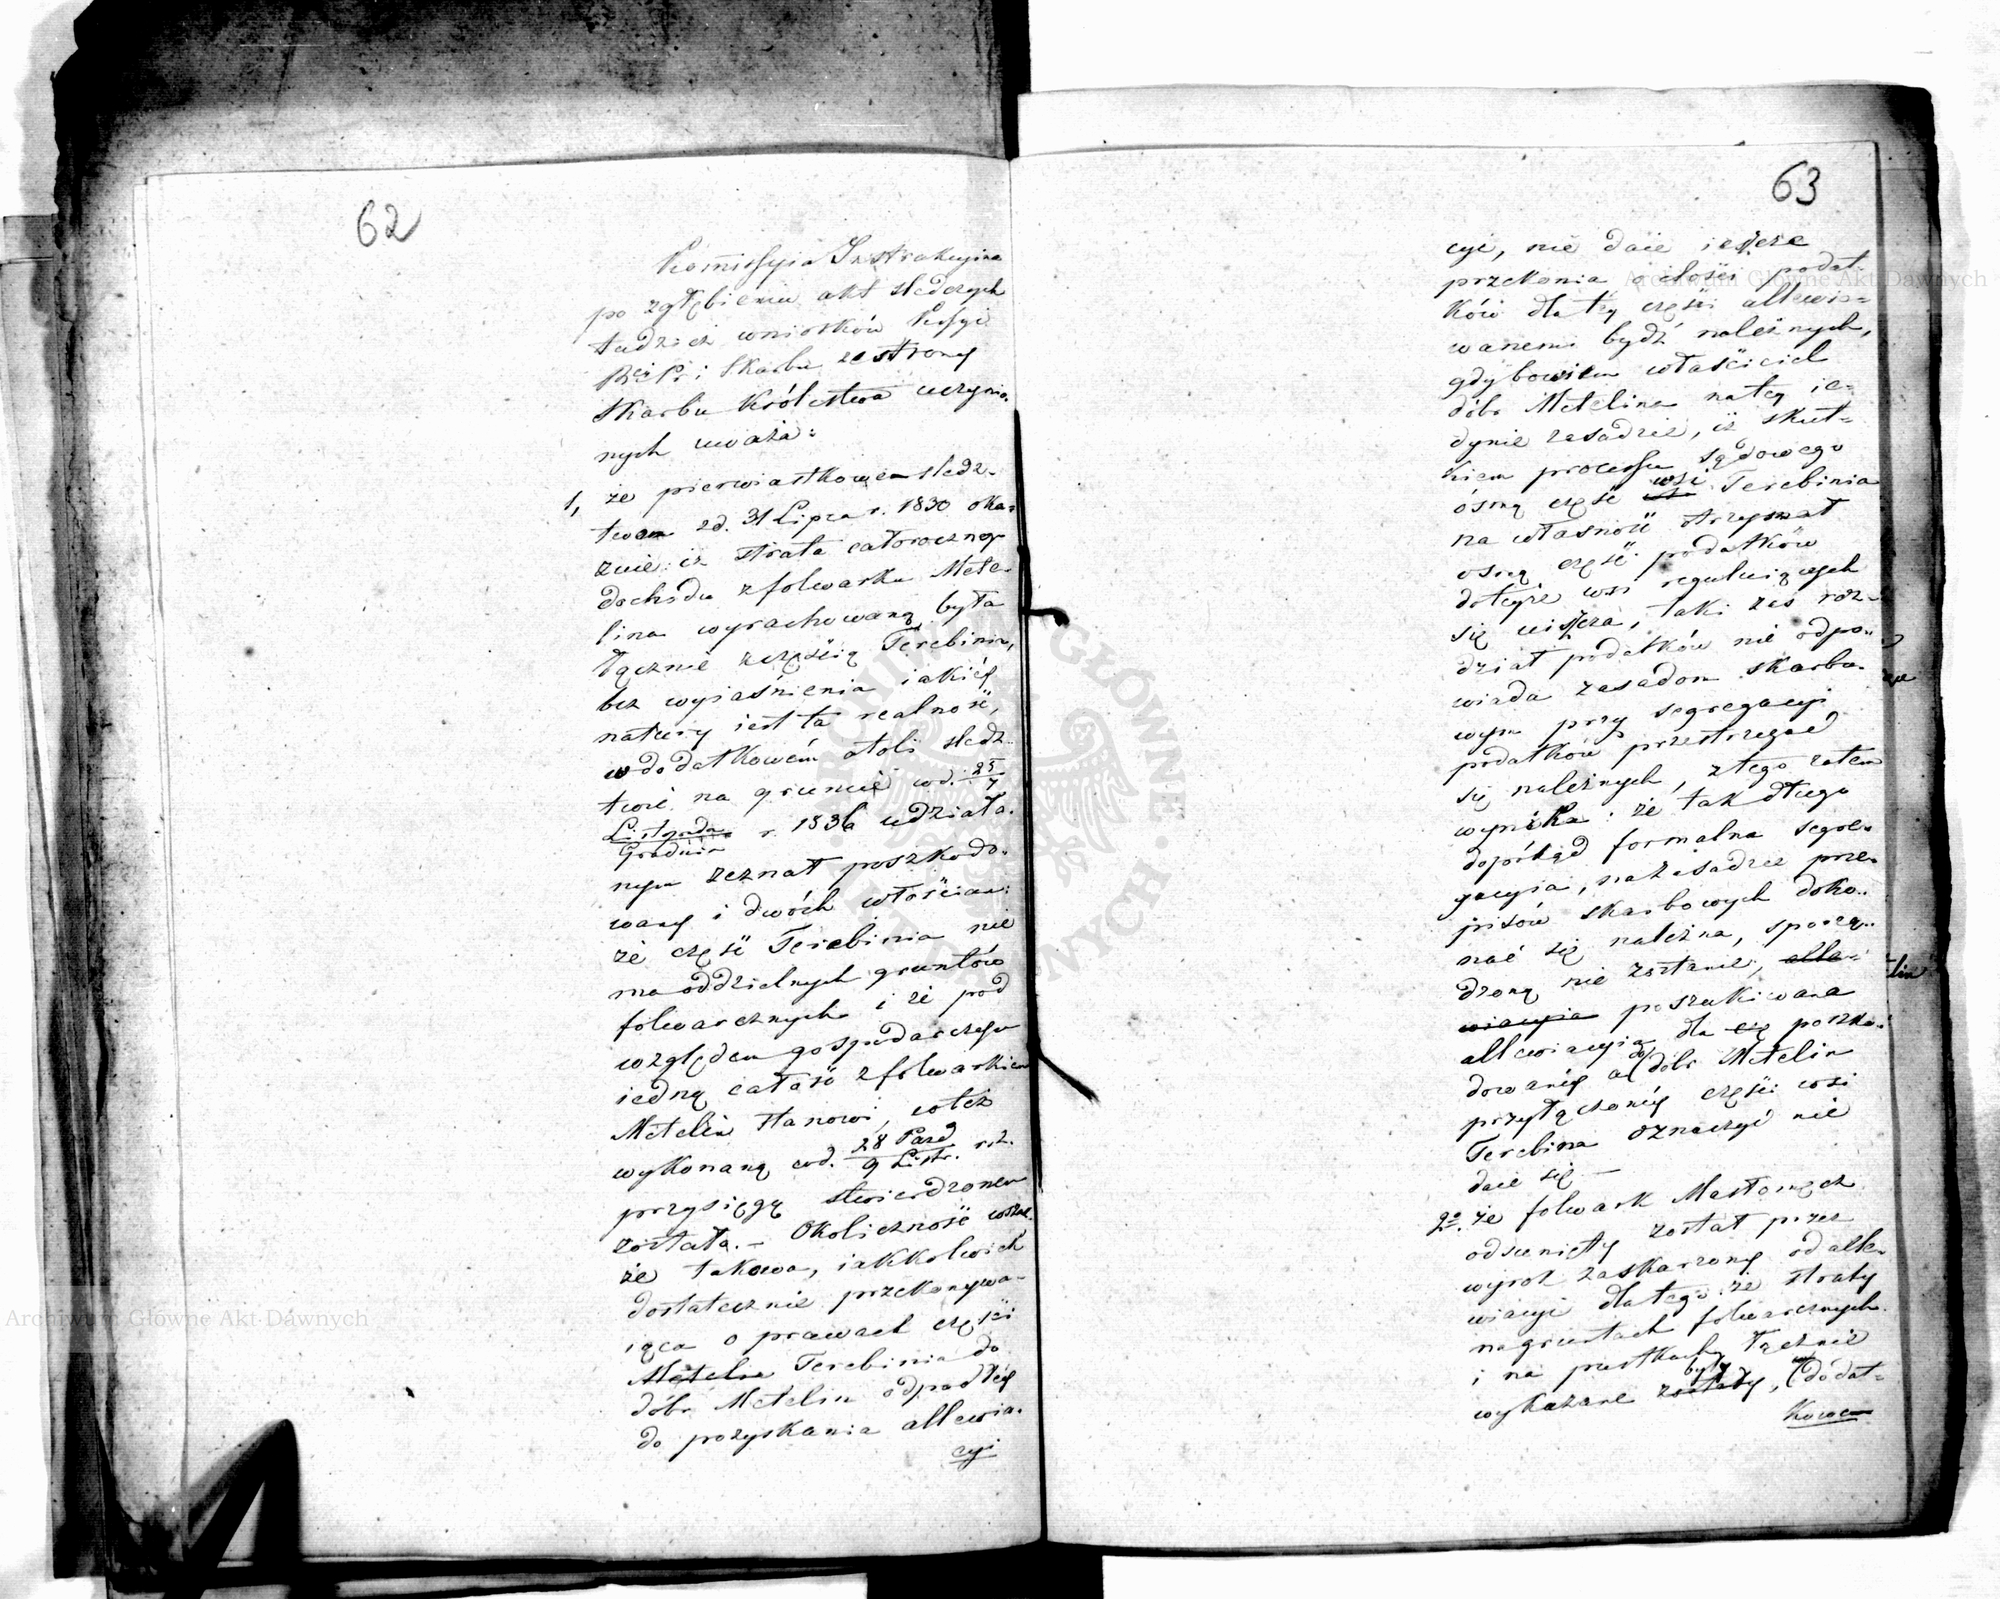 62
Kommissyia Instrukcyina
po zgłębieniu akt śledczych
tudzież wniosków Kssyi
Rei Pr: i Skarbu ze strony
Skarbu Królestwa uczynio-
nych uważa:
1, że pierwiastkowem śledz-
twem zd. 31 Lipca r. 1830 oka-
zuie: iż strata całorocznego
dochodu z folwarku Mete-
lina wyrachowaną była
łącznie z częścią Terebinia,
bez wyiaśnienia iakiéy
natury iest ta realność,
w dodatkowém atoli śledz-
twie na gruncie w d. 25/7
Listopada/Grudnia r. 1836 udziała-
nym zeznał poszkodo-
wany i dwóch włościan:
że część Terebinia nie
ma oddzielnych gruntów
folwarcznych i że pod
względem gospodarczym
iedną całość z folwarkiem
Metelin stanowi, co też
wykonaną w d. 28 Pazd/9 List. r. z.
przysięgą stwierdzonem
zostało. – Okoliczność wszak-
że takowa, iakkolwiek
dostatecznie przekonywa-
iąca o prawach części
Metelna Terebinia do
dóbr Metelin odpadłéy
do pozyskania allewia-
cyi
63
cyi, nie daie ieszcze
przekonia o ilości podat
ków dla téy części allewio-
wanemi bydź należnych,
gdy bowiem właściciel
dóbr Metelina na téy ie-
dynie zasadzie, iż skut-
kiem processu sądowego
ósmą część wsi Terebinia
na własność otrzymał
osmą część podatków
do teyże wsi regulujących
się uiszcza, taki zaś roz-
dział podatków nie odpo-
wiada zasadom skarbo-
wym przy segregacyi
podatków przestrzegać
się należnych, z tego zatem
wynika: że tak długo
dopókąd formalna segre-
gacyia, na zasadzie prze-
pisów skarbowych doko-
nać się należna, sporzą-
dzoną nie zostanie, alle-
wiacyia poszukiwana
allewiacyia dla cię poszko-
dowanéy od do dóbr Metelin
przyłączonéy części wsi
Terebina oznaczyć nie
daie się –
2o. że folwark Masłomęcz
odsunięty został przez
wyrok zaskarżony od alle-
wiacyi dlatego: że straty
na gruntach folwarcznych
i na pustkach łącznie
wykazane zostały były, w dodat-
kowem
Archiwum Główne Akt Dawnych
Archiwum Główne Akt Dawnych
ARCHIWUM GŁÓWNE AKT DAWNYCH